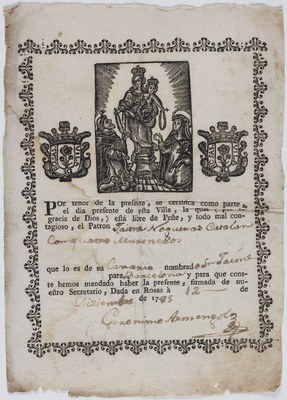 Por tenor de la presente, se certifica como parte
el dia presente de esta Villa, la qual
gracia de Dios, está libre de Peste, y todo mal con-
tagioso, el Patron Jaime Noguera Catalan
Con quatro Marineros
que lo es de su Canario nombrado Sn. Jaime
para Barcelona y para que cons-
te hemos mandado haber la presente, firmada de nu-
estro Secretario, Dada en Rosas à 12 de
Diciembre de 1785
Geronimo Armengol